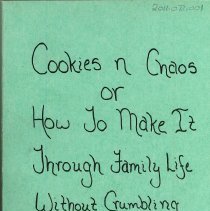 2011.072.001
Cookies n Chaos
or
How To Make It
Through Family Life
Without Crumbling